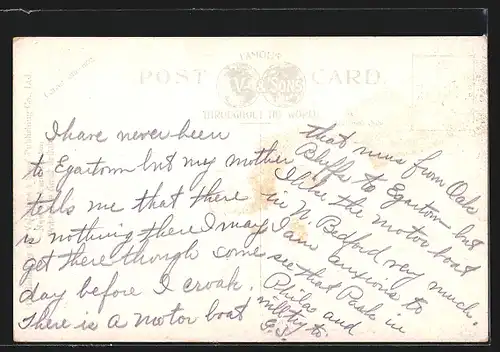 FAMOUS
POST CARD
& SONS
THROUGHOUT THE WORLD
Publishing Co., Ltd.
I have never been
to Egartom but my mother
tells me that there
is nothing there I may
get there though some
day before I croak.
There is a motor boat
that runs from Oak
Bluffs to Egartom but
I like the motor boat
in N. Bedford very much.
I am anxious to
see that Park in
Philas and
to.